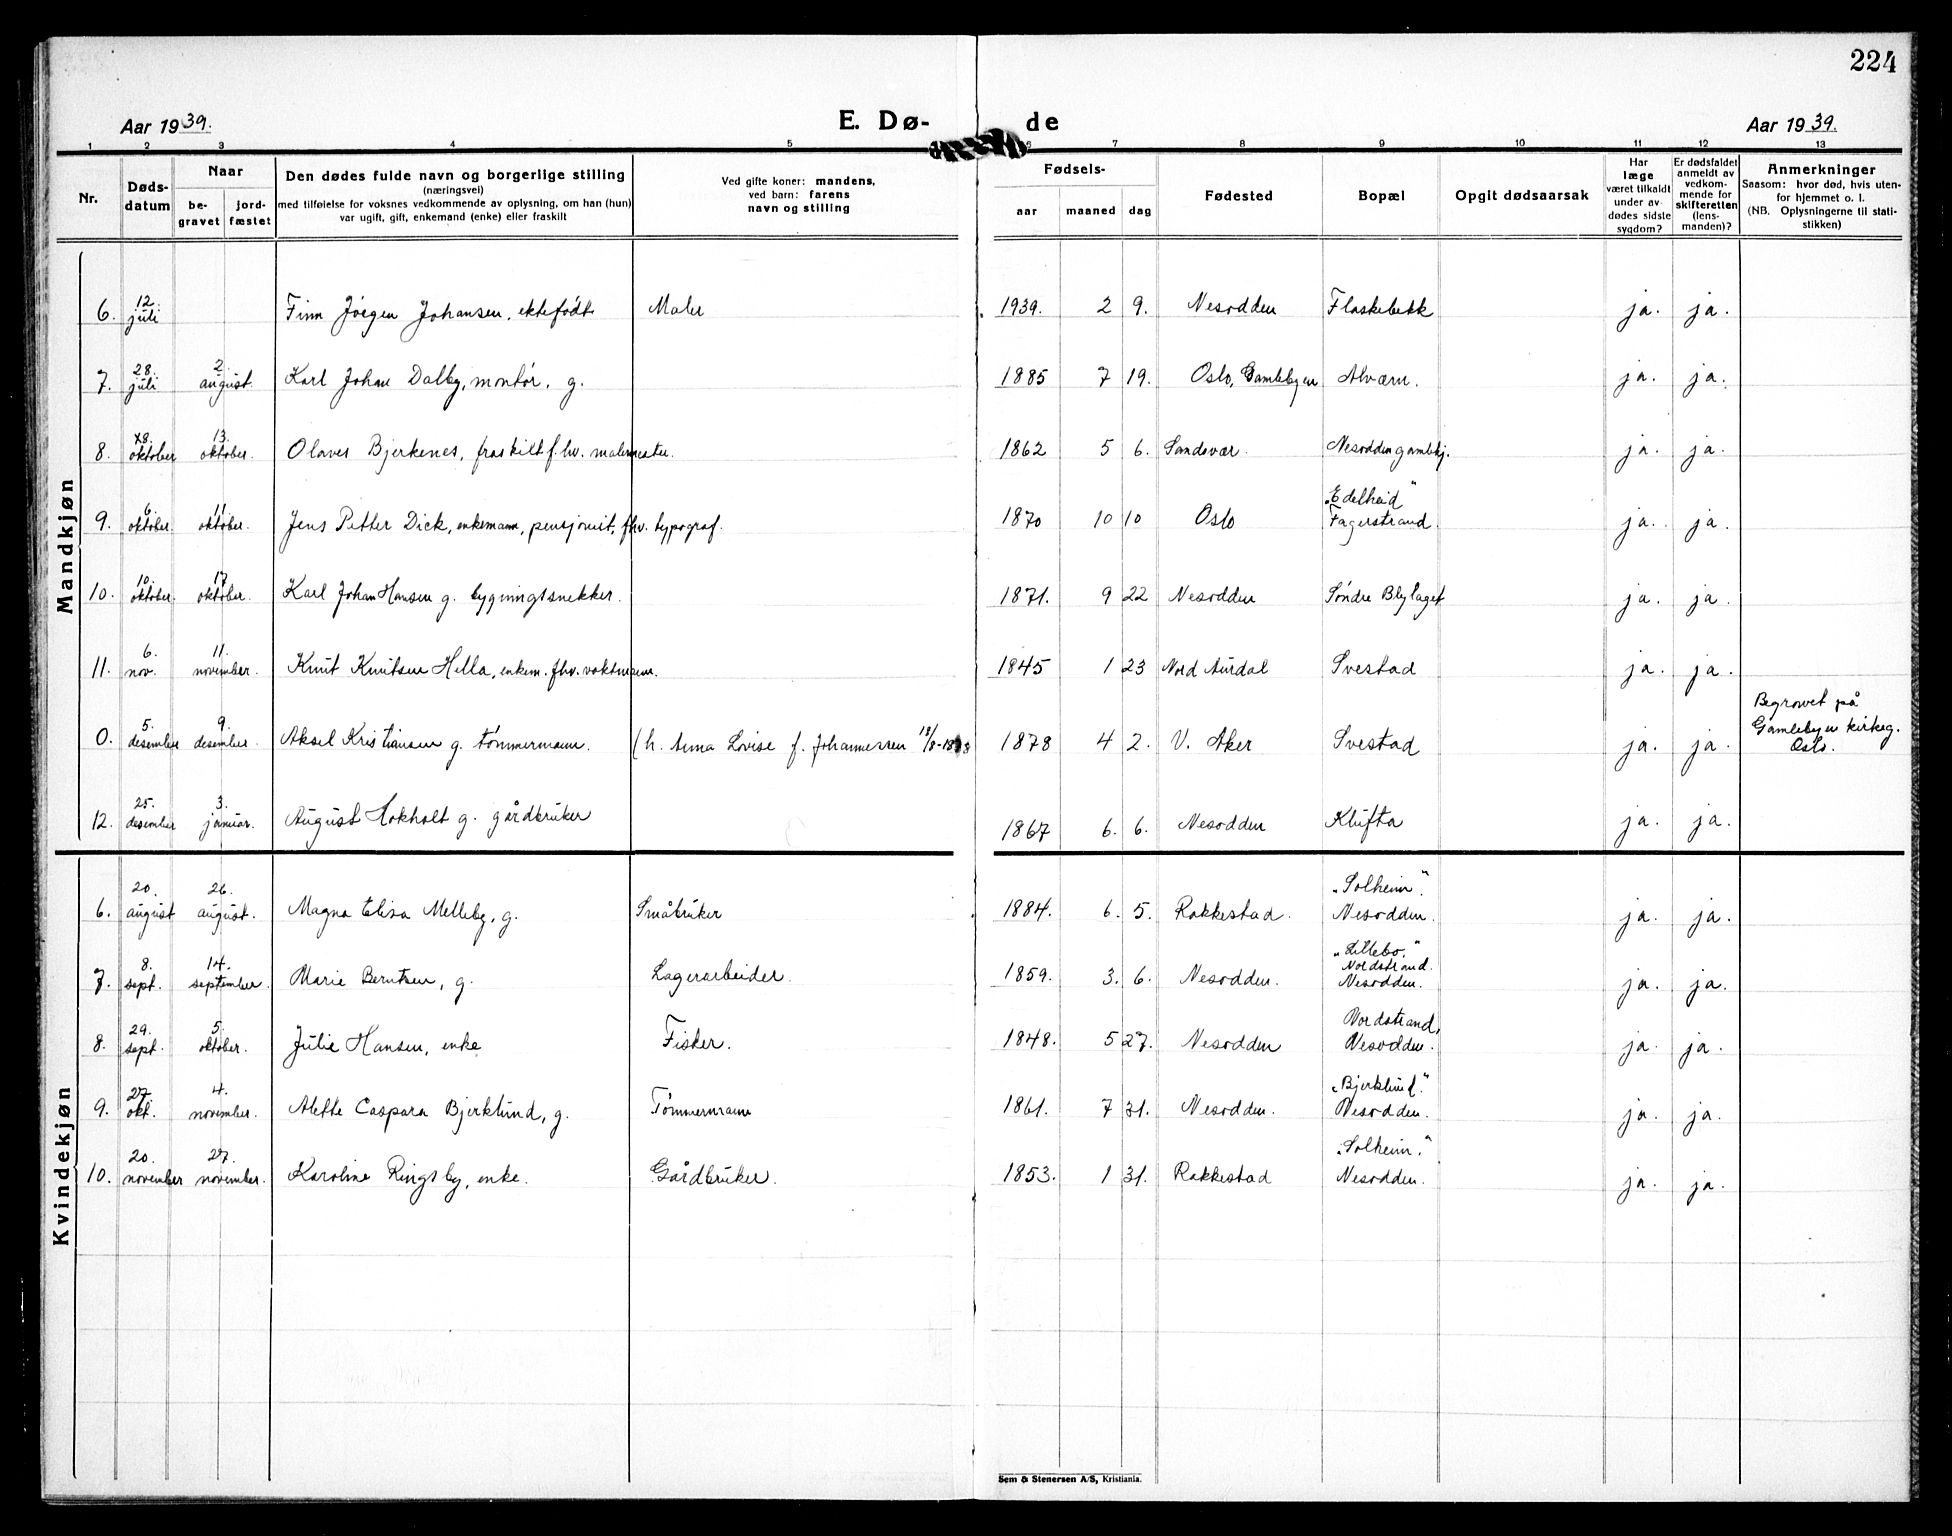 224
Aar 1939.
E. Dø-
de
Aar 1939.
1 2 3 4 5 6 7 8 9 10 11 12 13
Nr.
Døds-
datum
Naar
be-
gravet
jord-
fæstet
Den dødes fulde navn og borgerlige stilling
(næringsvei)
med tilføielse for voksnes vedkommende av oplysning, om han (hun)
var ugift, gift, enkemand (enke) eller fraskilt
Ved gifte koner: mandens,
ved barn: farens
navn og stilling
Fødsels-
aar maaned dag
Fødested
Bopæl
Opgit dødsaarsak
Har
læge
været tilkaldt
under av-
dødes sidste
sygdom?
Er dødsfaldet
anmeldt av
vedkom-
mende for
skifteretten
(lens-
manden)?
Anmerkninger
Saasom: hvor død, hvis uten-
for hjemmet o. l.
(NB. Oplysningerne til stati-
stikken)
Mandkjøn
6. 12. juli Finn Jørgen Johansen, ektefødt Maler 1939. 2 9. Nesodden Flaskebekk ja. ja.
7. 28. juli 2. august. Karl Johan Dalby, montør, g. 1885 7 19. Oslo, Gamlebyen Alværn. ja. ja.
8. oktober 13. oktober. Olaves Bjerkenes, fraskilt f.hv. malermester. 1862 5 6. Sandsvær. Nesodden gamlehj. ja. ja.
9. 6. oktober. 11. oktober. Jens Petter Dick, enkemann, pensjonist, fhv. typograf. 1870 10 10 Oslo "Edelheid" Fagerstrand. ja. ja.
10. 10. oktober. 17. oktober. Karl Johan Hansen g. bygningssnekker. 1871. 9 22 Nesodden Søndre Blylaget ja. ja.
11. 6. nov. 11. november. Knut Knutsen Hella, enkem. fhv. vaktmann. 1845 1 23 Nord Aurdal Svestad ja. ja.
0. 5. desember 9. desember. Aksel Kristiansen g. tømmermann. (h. Anna Lovise f. Johannessen 18/8-18 8 1878 4 2. V. Aker Svestad ja. ja. Begravet på Gamlebyen kirkeg. Oslo.
12. 25. desember 3. januar. August Hokholt g. gårdbruker 1867 6. 6. Nesodden Klufta ja. ja.
Kvindekjøn
6. 20. august 26. august. Magna Elisa Melleby, g. Småbruker 1884. 6. 5. Rakkestad. "Solheim". Nesodden. ja. ja.
7. 8. sept. 14. september. Marie Berntsen, g. Lagerarbeider. 1859. 3. 6. Nesodden. "Lillebo," Nordstrand. Nesodden. ja. ja.
8. 29. sept. 5. oktober. Julie Hansen, enke Fisker. 1848. 5 27. Nesodden Nordstrand, Nesodden. ja. ja.
9. 27. okt. 4. november. Alette Caspara Bjerklund, g. Tømmermann 1861. 7 31. Nesodden. "Bjerklund". Nesodden. ja. ja.
10. 20. november 27. november. Karoline Ringsby, enke. Gårdbruker. 1853. 1 31. Rakkestad "Solheim". Nesodden. ja. ja.
Sem & Stenersen A/S, Kristiania.